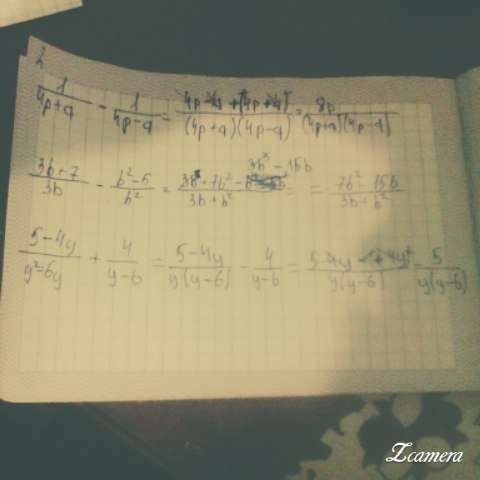 2
1/(4p+q) - 1/(4p-q) = (4p-q+(4p+q))/((4p+q)(4p-q)) = 8p/((4p+q)(4p-q))
(3b+7)/3b - (b²-5)/b² = (3b³+7b²-3b³-15b)/(3b+b²) = = (7b²-15b)/(3b+b²)
(5-4y)/(y²-6y) + 4/(y-6) = (5-4y)/(y(y-6)) - 4/(y-6) = (5-4y+4y)/(y(y-6)) 5/(y(y-6))
Zcamera